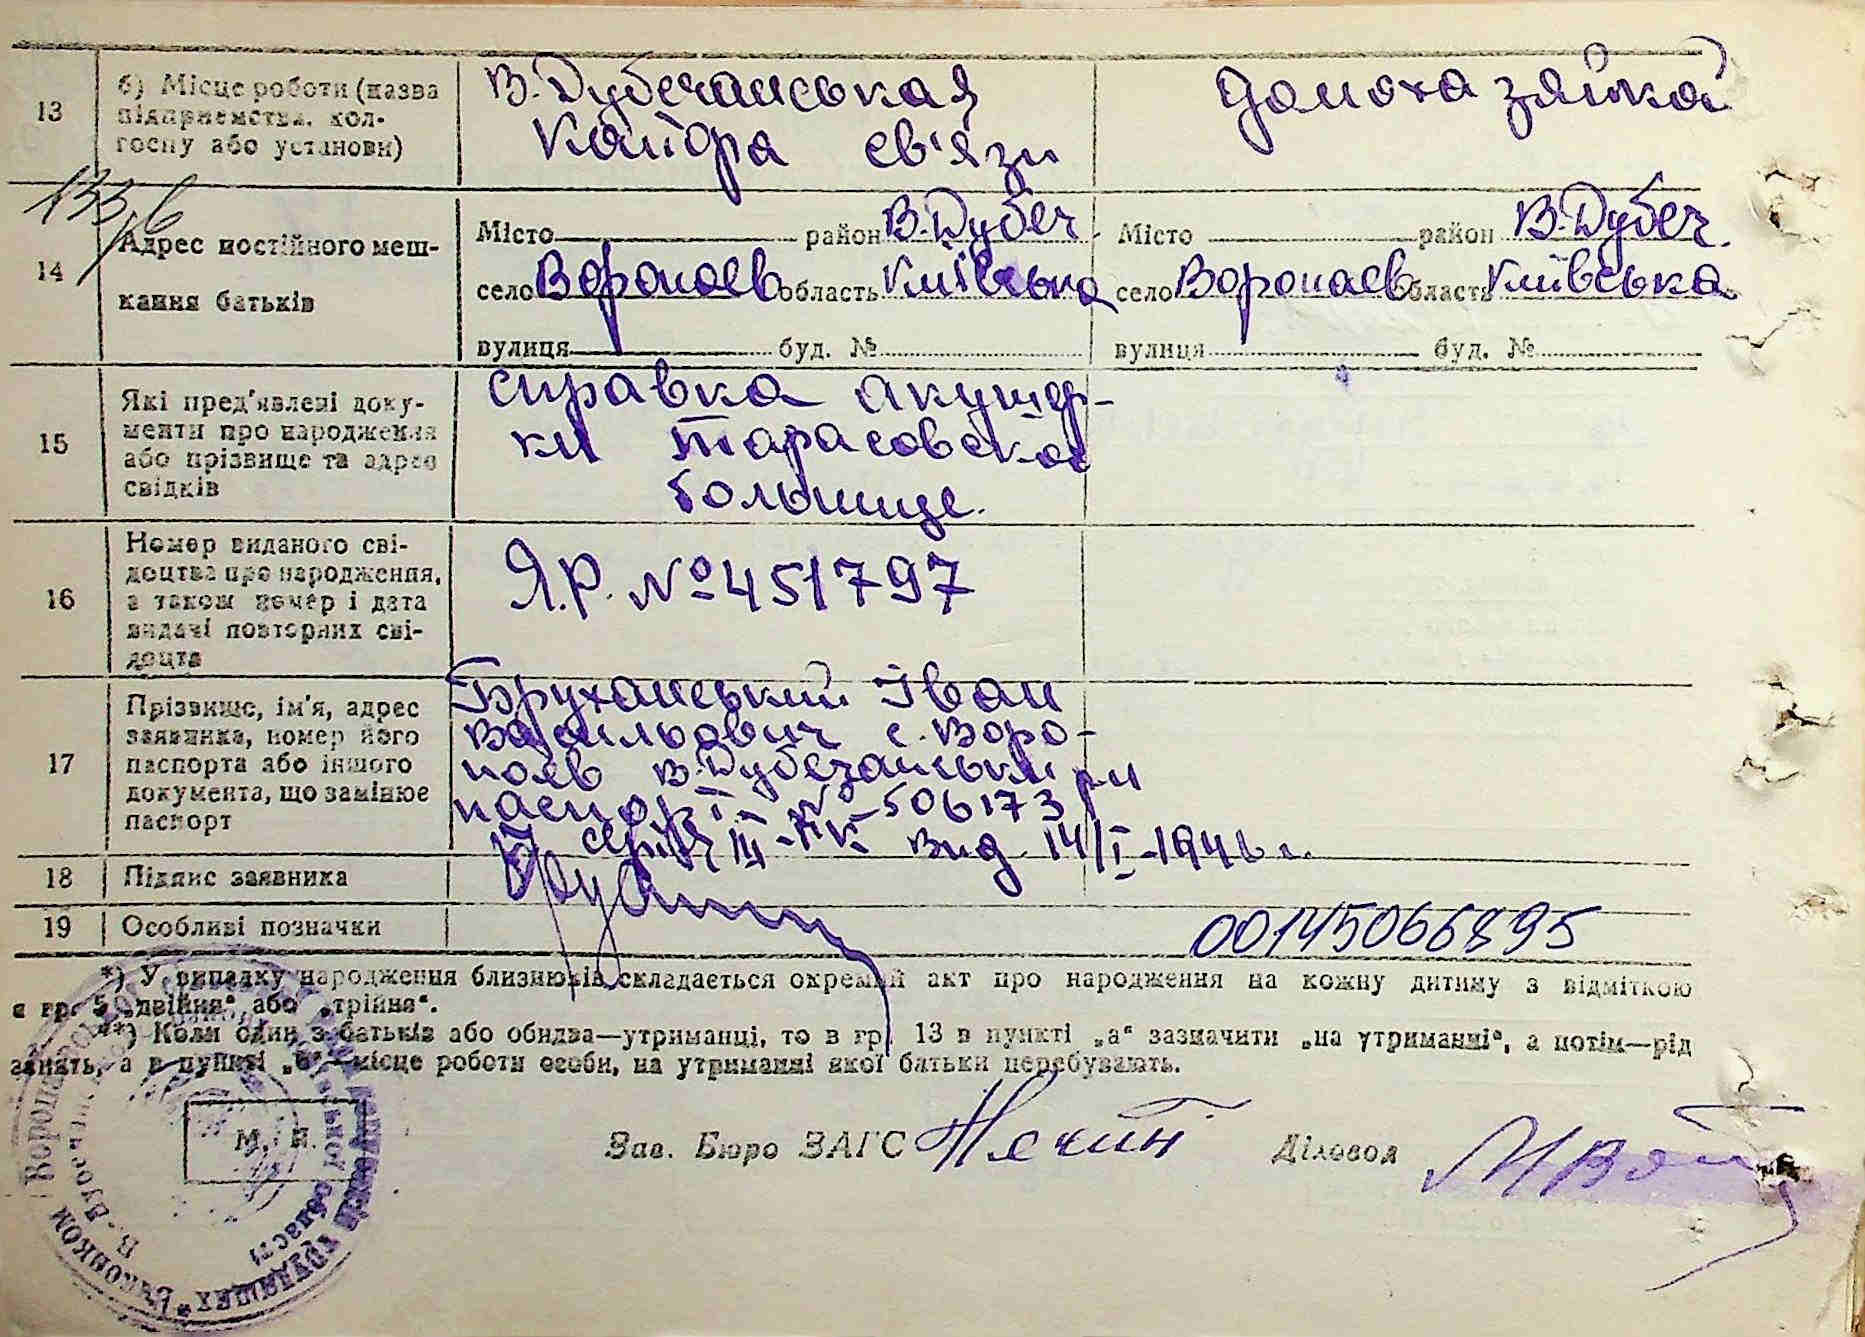 13
б) Місце роботи (назва
підприємства, кол-
госпу або установи)
В. Дубечанськая
Контора св'язи
домохазяйка
133/в
14
Адрес постійного меш-
кання батьків
Місто район В. Дубеч.
село Воропаев область Київська
вулиця буд. №
Місто район В. Дубеч.
село Воропаев область Київська
вулиця буд. №
15
Які пред'явлені доку-
менти про народження
або прізвище та адрес
свідків
справка акушер-
ки Тарасовской
больнице.
16
Номер виданого сві-
доцтва про народження,
а також номер і дата
видачі повторних сві-
доцтв
Я.Р. № 451797
17
Прізвище, ім'я, адрес
заявника, номер його
паспорта або іншого
документа, що замінює
паспорт
Бруханський Іван
Васильович с. Воро-
паев В. Дубечанськи рн
паспорт № 506173
серія III-НК вид 14/I-1941 г.
18
Підпис заявника
19
Особливі позначки
00145066895
*) У випадку народження близнюків складається окремий акт про народження на кожну дитину з відміткою
в гр. 5 „двійня“ або „трійня“.
**) Коли один з батьків або обидва—утриманці, то в гр. 13 в пункті „а“ зазначити „на утриманні“, а потім—рід
занять, а в пункті „б“—місце роботи особи, на утриманні якої батьки перебувають.
М. П.
Зав. Бюро ЗАГС
Діловод